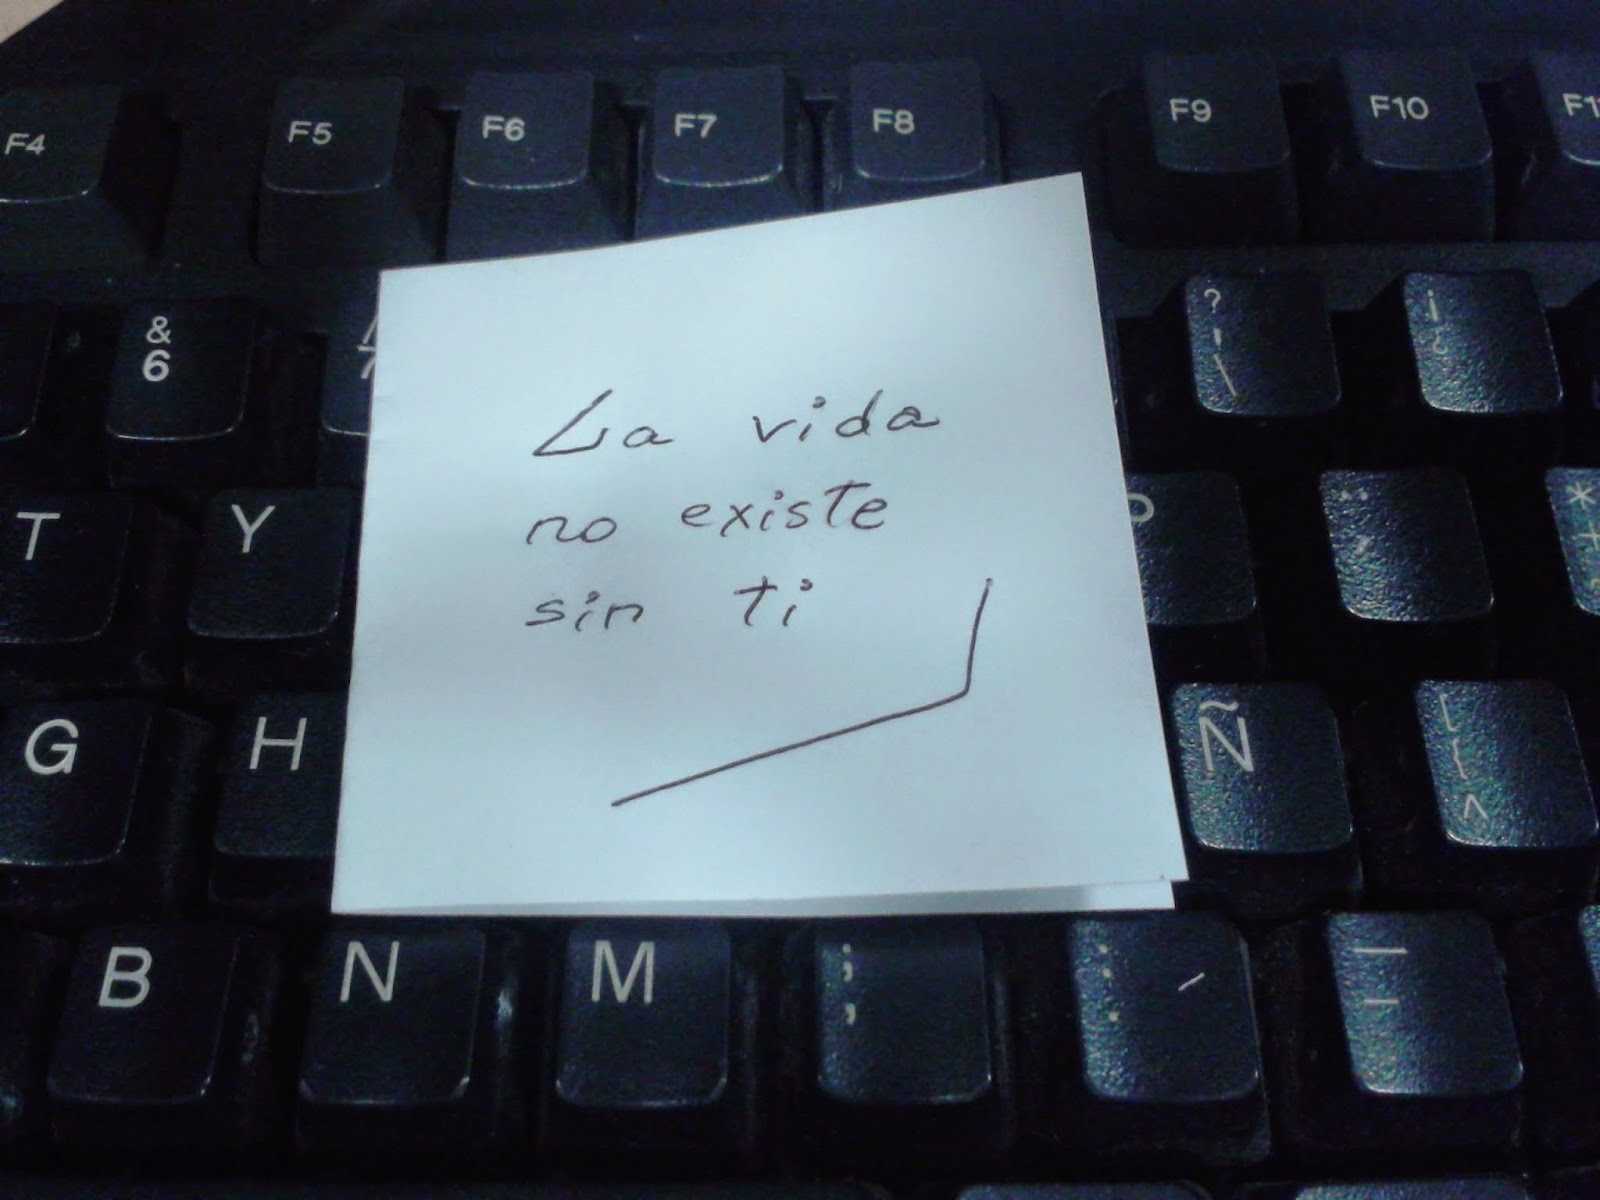 F4 F5 F6 F7 F8 F9 F10
&
6
? ¡
' ¿
\
La vida
no existe
sin ti
T Y P ¨ *
´ +
G H Ñ [
{
^
B N M ; : _
, . -